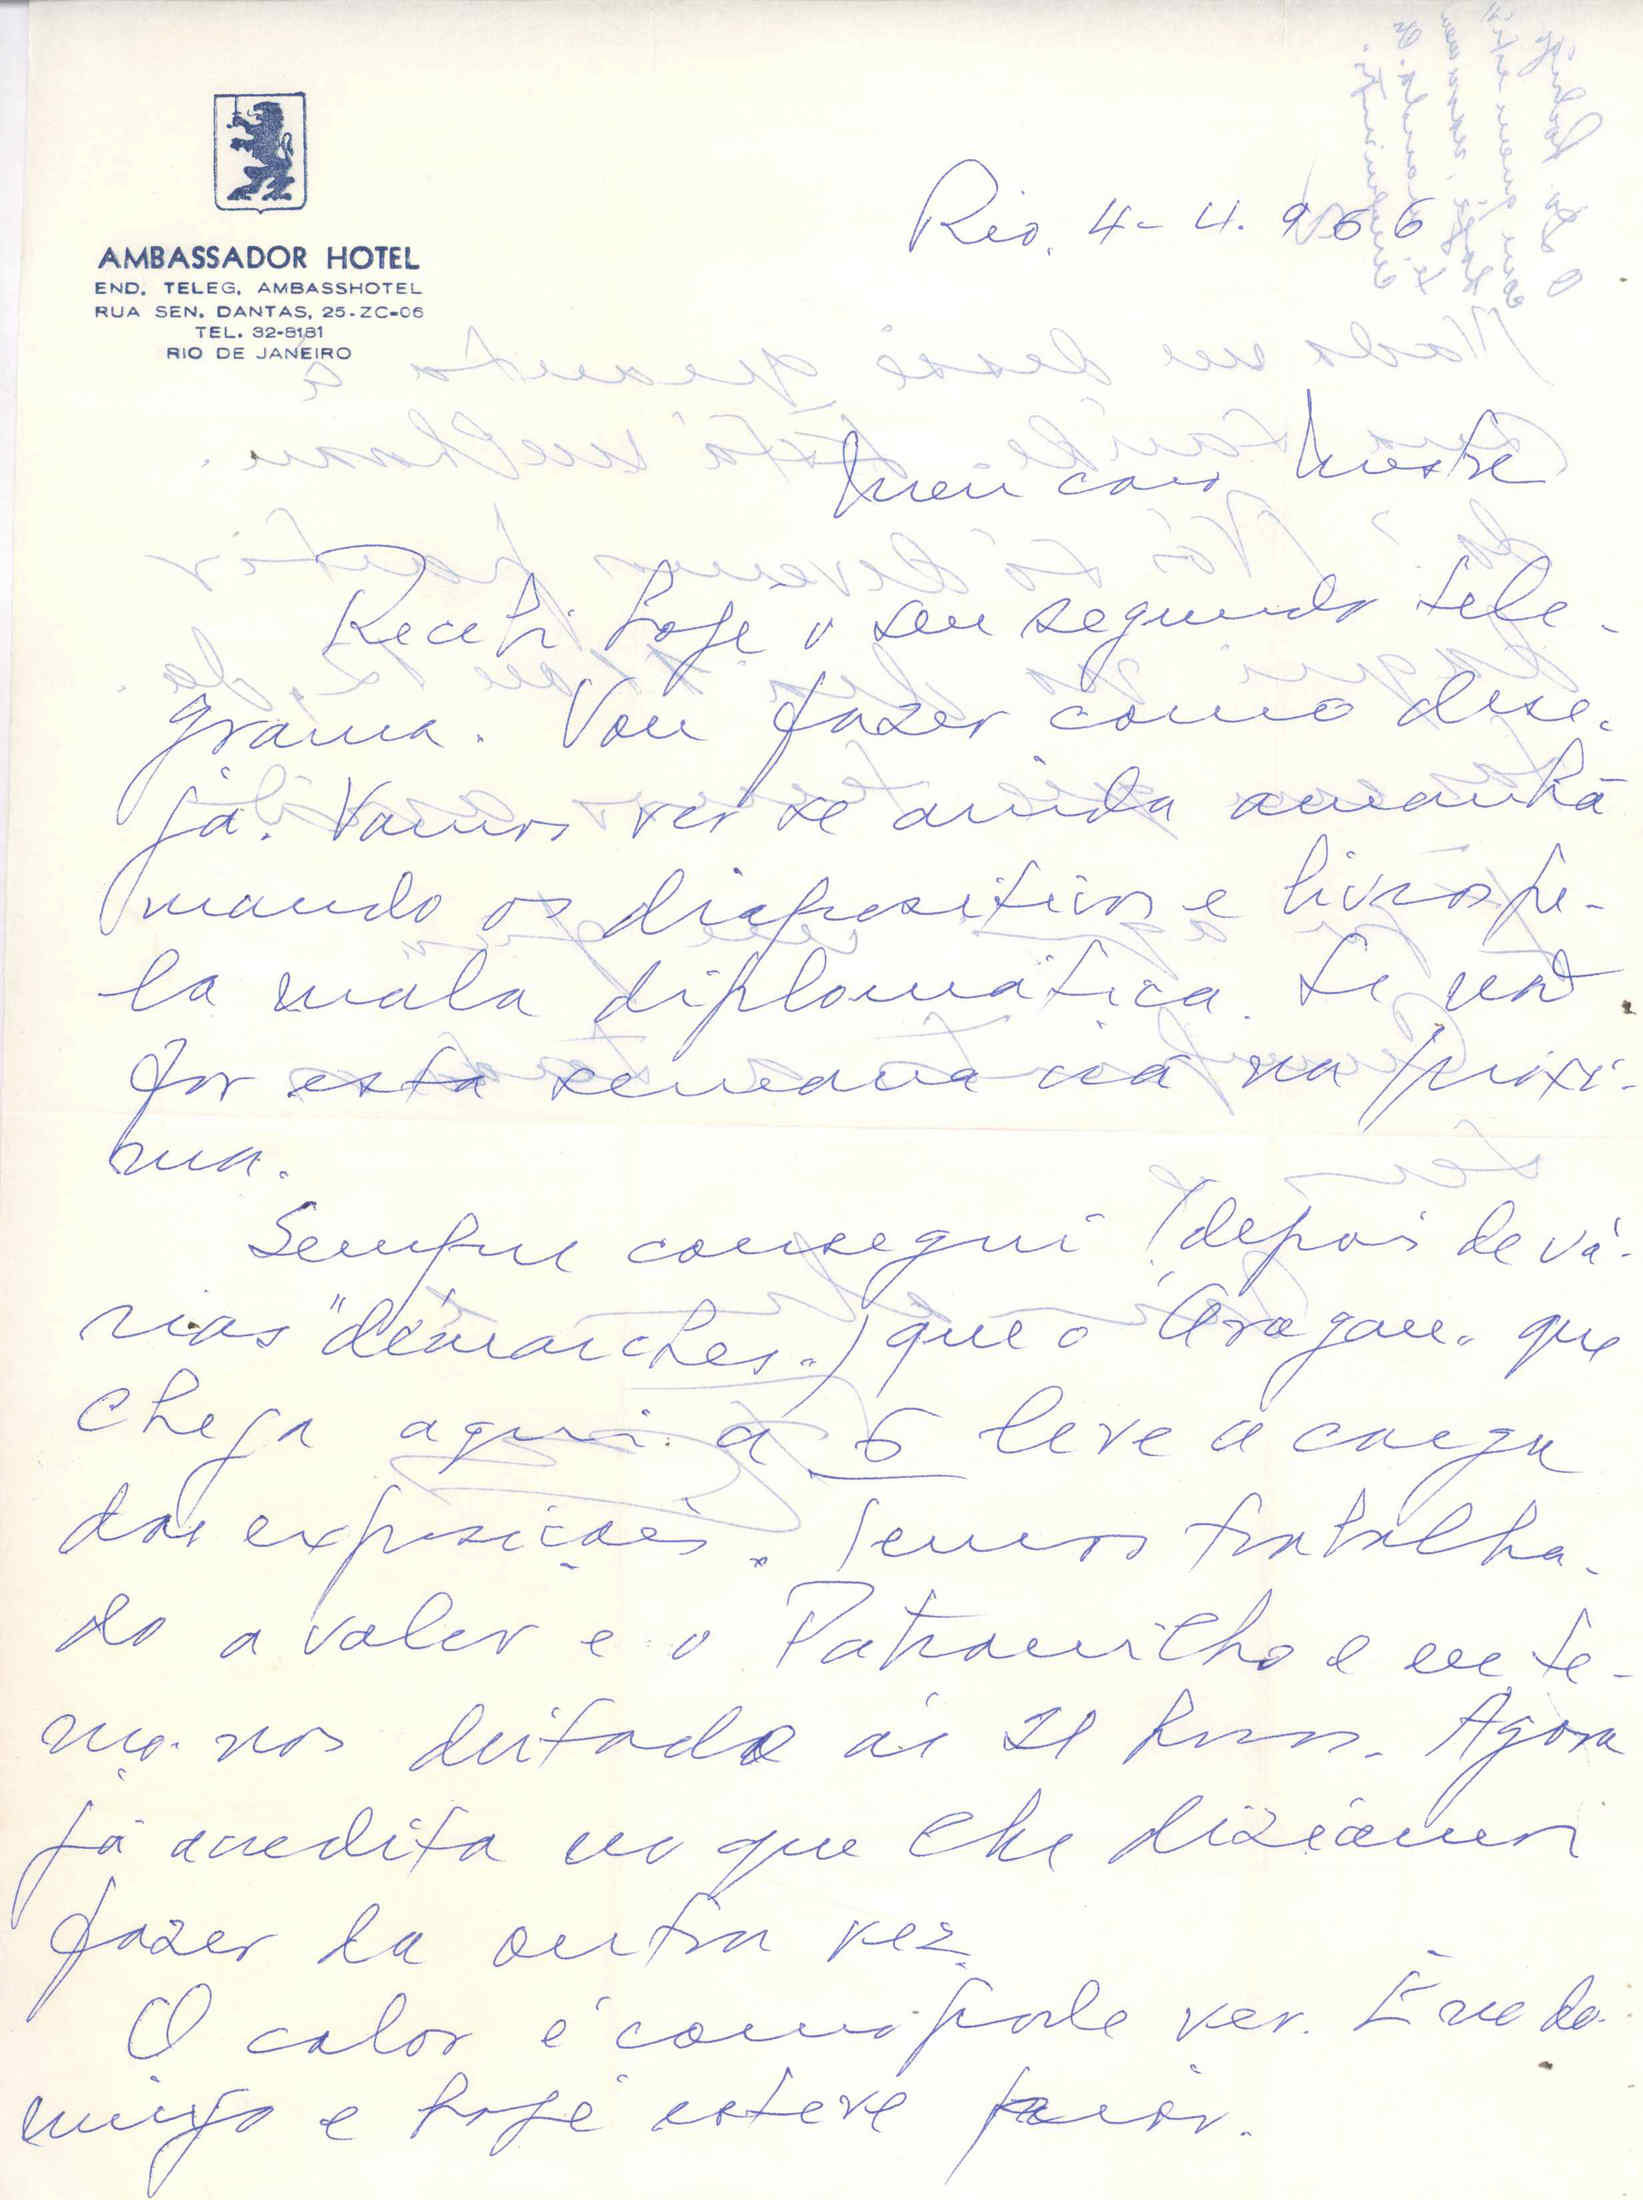 AMBASSADOR HOTEL
END. TELEG. AMBASSHOTEL
RUA SEN. DANTAS, 25-ZC-06
TEL. 32-8181
RIO DE JANEIRO
Rio. 4-4.966
Meu caro Mestre
Recebi hoje o seu segundo tele-
grama. Vou fazer como dese-
ja. Vamos ver se ainda amanhã
mando os diapositivos e livros pe-
la mala diplomática. Se não
for esta semana irá na próxi-
ma.
Sempre consegui (depois de vá-
rias "démarches") que o Aragão que
chega aqui a 6 leve a carga
das exposições. Temos trabalha-
do a valer e o Patronilho e eu te-
mo-nos deitado às 21 horas. Agora
já acredita no que lhe dizíamos
fazer da outra vez.
O calor é como pode ver. É no do-
mingo e hoje esteve